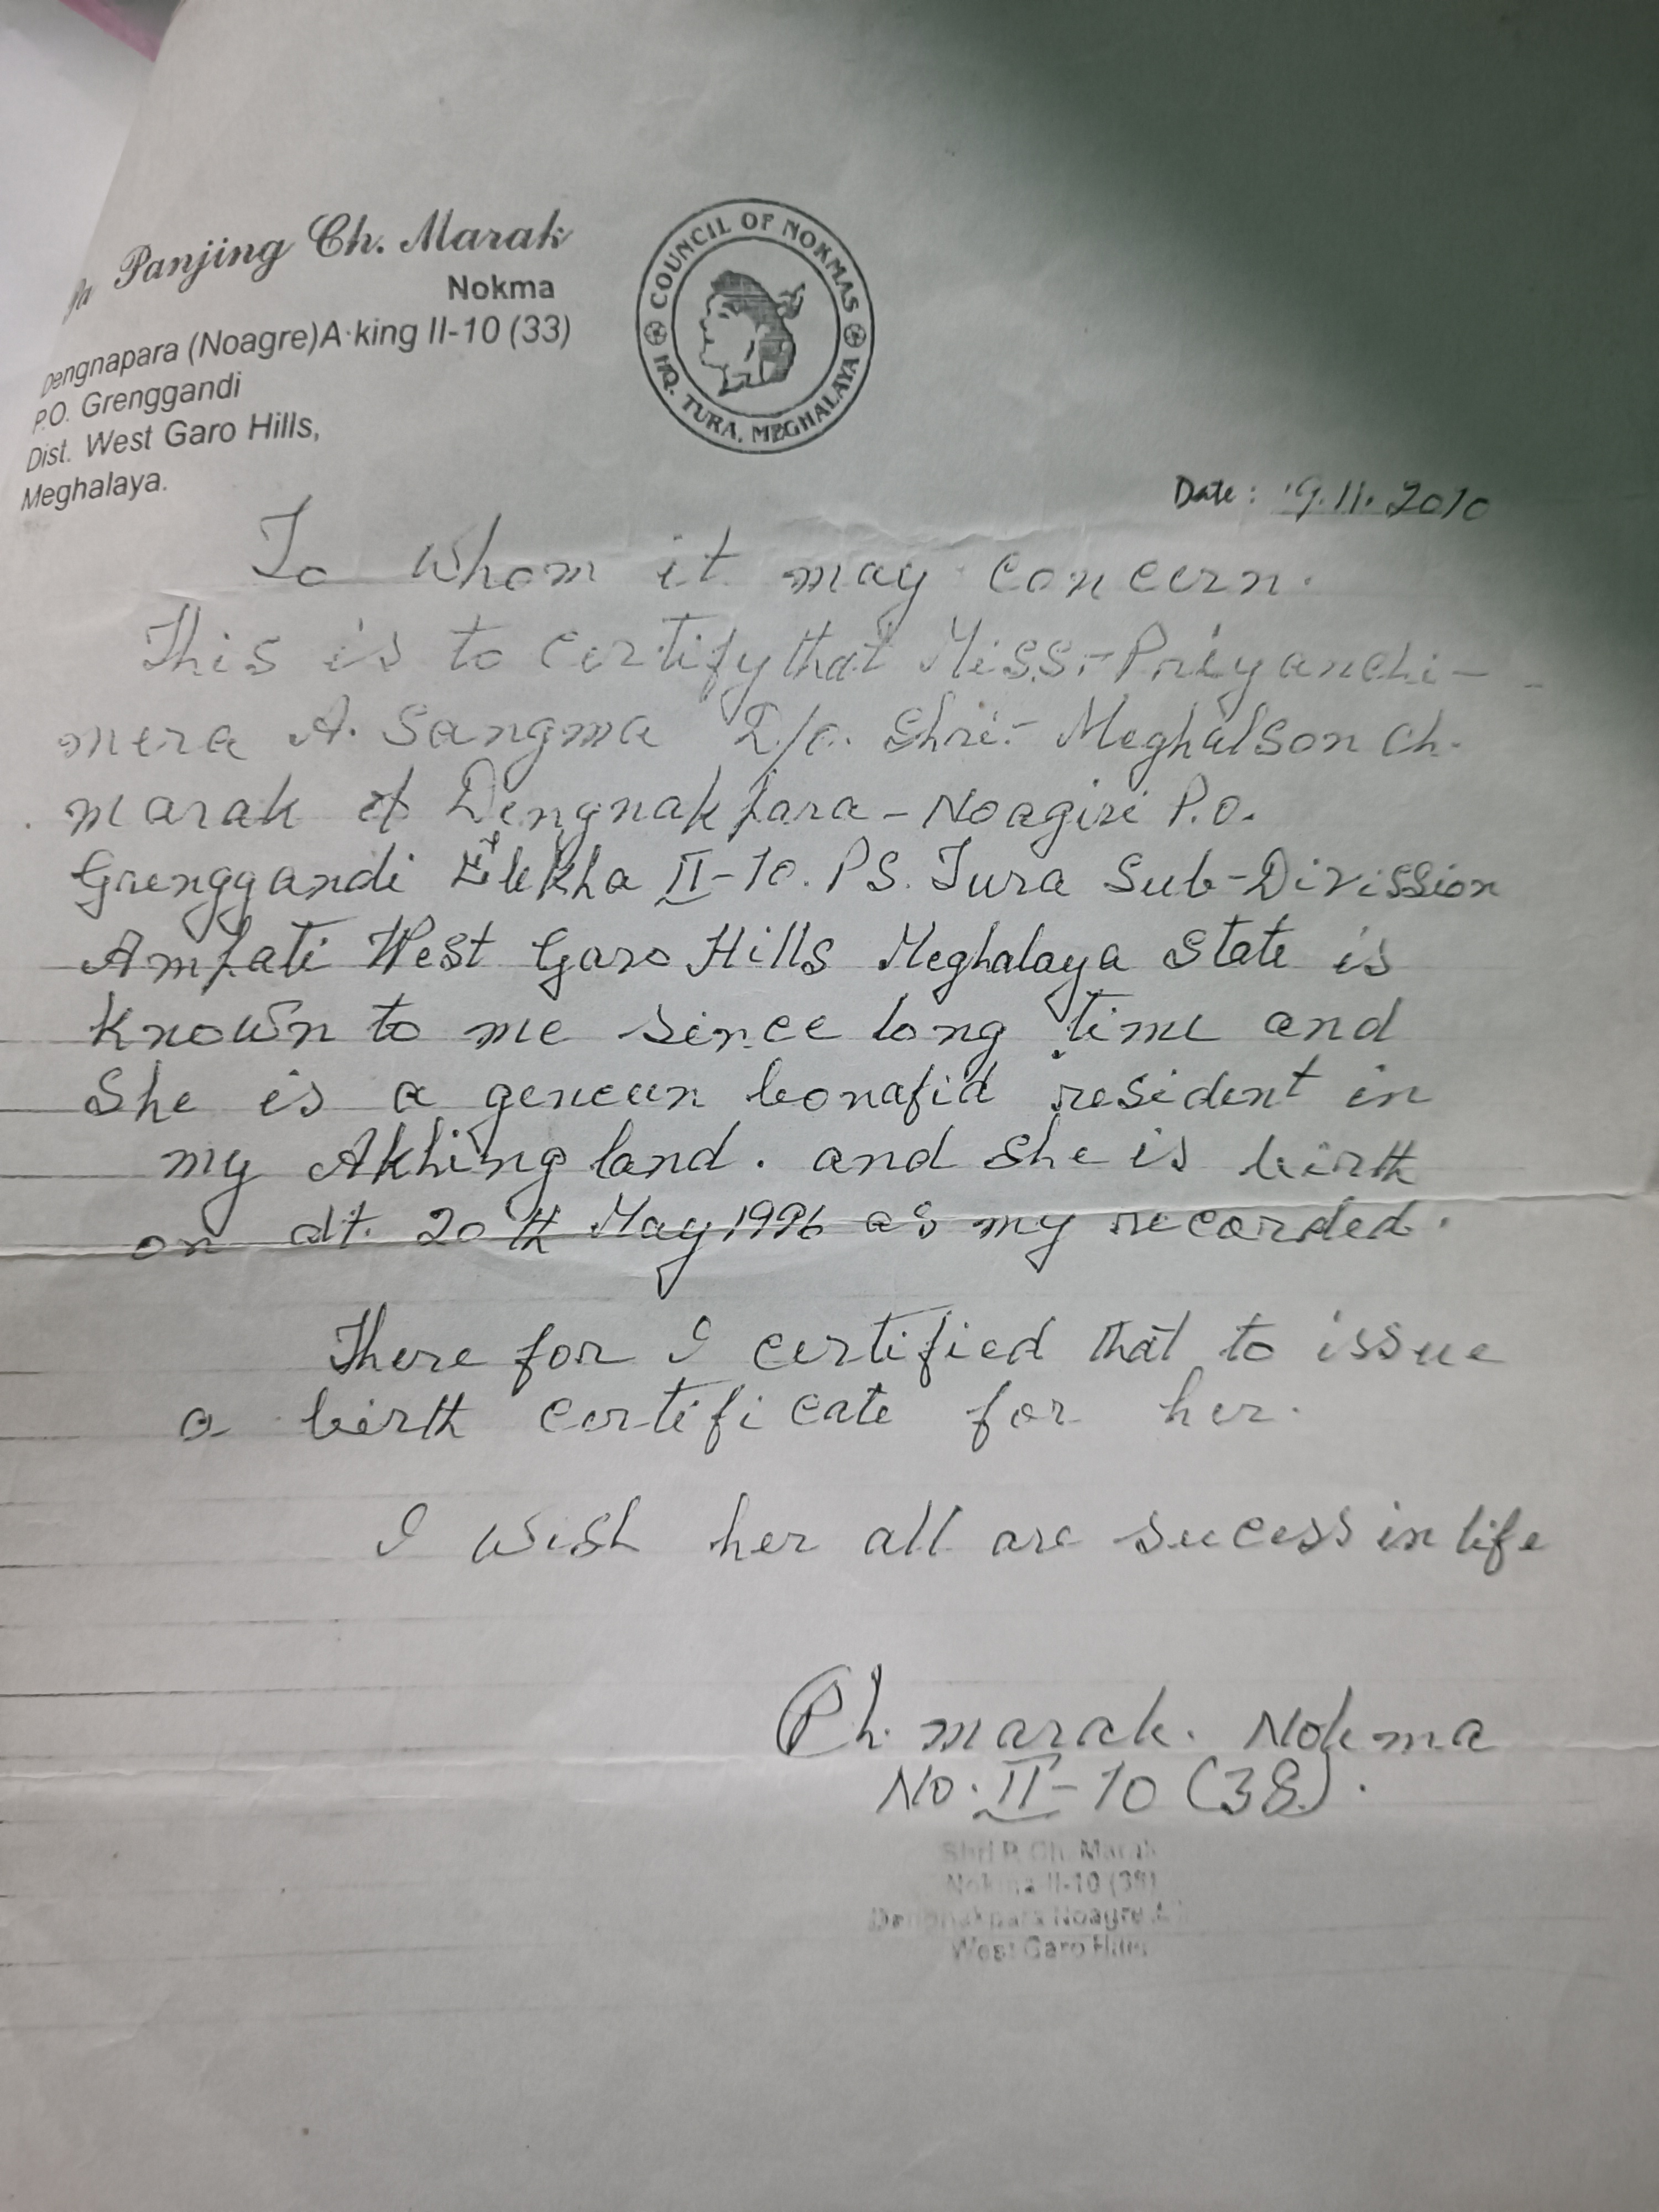 Panjing Ch. Marak
Nokma
Dengnapara (Noagre)A·king II-10 (33)
P.O. Grenggandi
Dist. West Garo Hills,
Meghalaya.
COUNCIL OF NOKMAS
HQ. TURA, MEGHALAYA
Date: 9.11.2010
To whom it may concern.
This is to certify that Miss:- Priyanchi-
mera A. Sangma D/o. Shri:- Meghalson Ch.
marak of Dengnakpara - Noagiri P.O.
Grenggandi Elekha II-10. PS. Tura Sub-Divission
Ampati West Garo Hills Meghalaya State is
Known to me since long time and
She is a geneun bonafid resident in
my Akhing land. and she is birth
on dt. 20th May 1996 as my recorded.
There for I certified that to issue
a birth certificate for her.
I wish her all are sucess in life
Ph. marak. Nokma
No. II-10 (38).
Shri P. Ch. Marak
Nokma II-10 (38)
Noagre
West Garo Hills